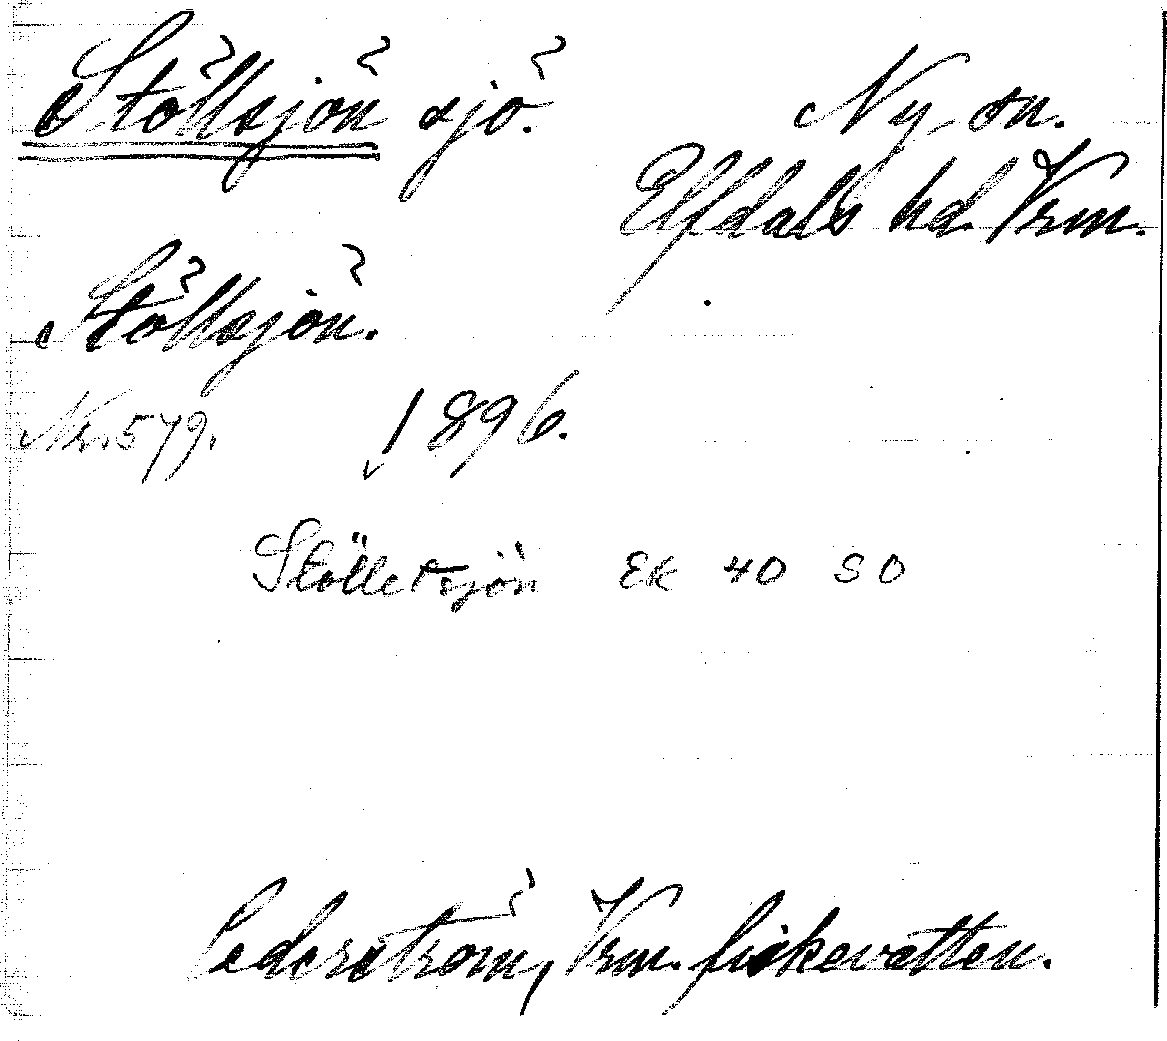 Stöllsjön sjö. Ny sn.
Elfdals hd. Vrm.
Stöllsjön.
Nr. 579. 1896.
Stölletsjön Ek 40 SO
Cederström, Vrm. fiskevatten.